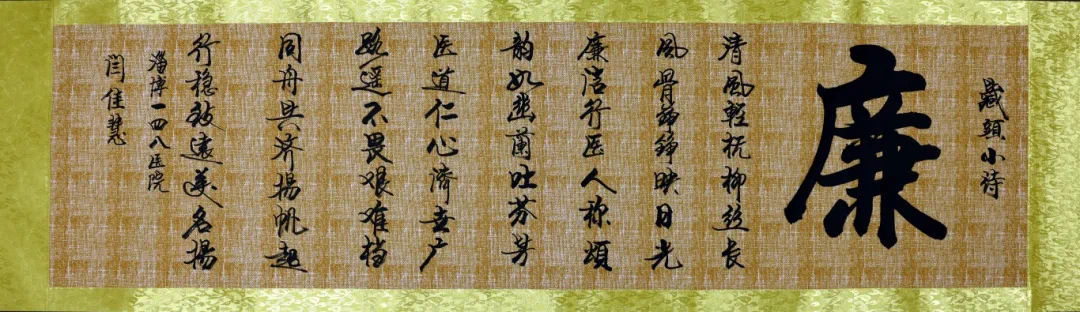 藏頭小诗
廉
清風輕抚柳丝长
風骨铮錚映日光
廉洁行医人称頌
韵如幽蘭吐芬芳
医道仁心濟世广
路遥不畏艰难档
同舟共济揚帆起
行稳致遠美名揚
淄博一四八医院
闫佳慧